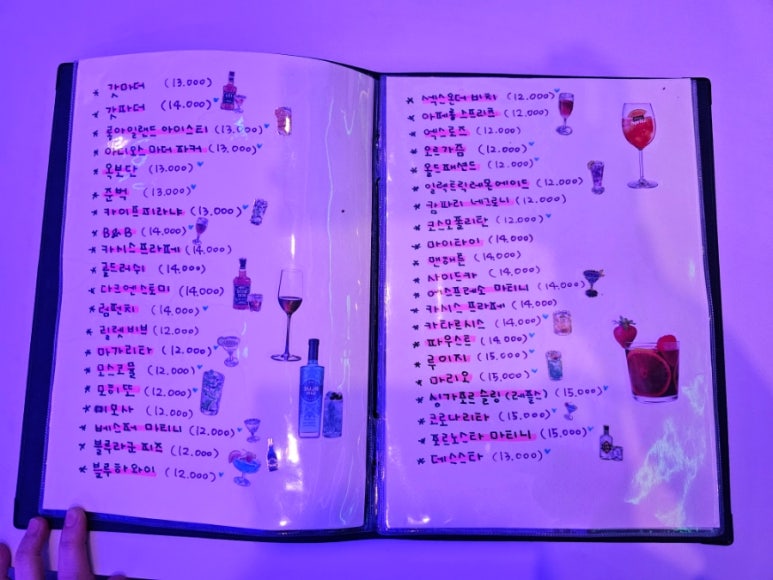 * 갓마더 (13.000)
* 갓파더 (14.000)
* 롱아일랜드 아이스티 (13.000)
* 아디오스 마더 파커 (13.000)
* 옥보단 (13.000)
* 준벅 (13.000)
* 카이프피리냐 (13.000)
* B&B (14.000)
* 카시스프라페 (14.000)
* 골드러쉬 (14.000)
* 다크앤스토미 (14.000)
* 럼펀치 (14.000)
* 릴렛비브 (12.000)
* 마가리타 (12.000)
* 모스코뮬 (12.000)
* 모히또 (12.000)
* 미모사 (12.000)
* 베스퍼 마티니 (12.000)
* 블루라군 피즈 (12.000)
* 블루하와이 (12.000)
* 섹스온더 비치 (12.000)
* 아페롤스프리츠 (12.000)
* 엑스로즈 (12.000)
* 오르가즘 (12.000)
* 올드패션드 (12.000)
* 일렉트릭레몬에이드 (12.000)
* 캄파리 네그로니 (12.000)
* 코스모폴리탄 (12.000)
* 마이타이 (14.000)
* 맨해튼 (14.000)
* 사이드카 (14.000)
* 에스프레소 마티니 (14.000)
* 카시스 프라페 (14.000)
* 카타르시스 (14.000)
* 파우스트 (14.000)
* 루이지 (15.000)
* 마리오 (15.000)
* 싱가포르 슬링 (래플스) (15.000)
* 코로나리타 (15.000)
* 포르노스타 마티니 (15.000)
* 데스스타 (13.000)